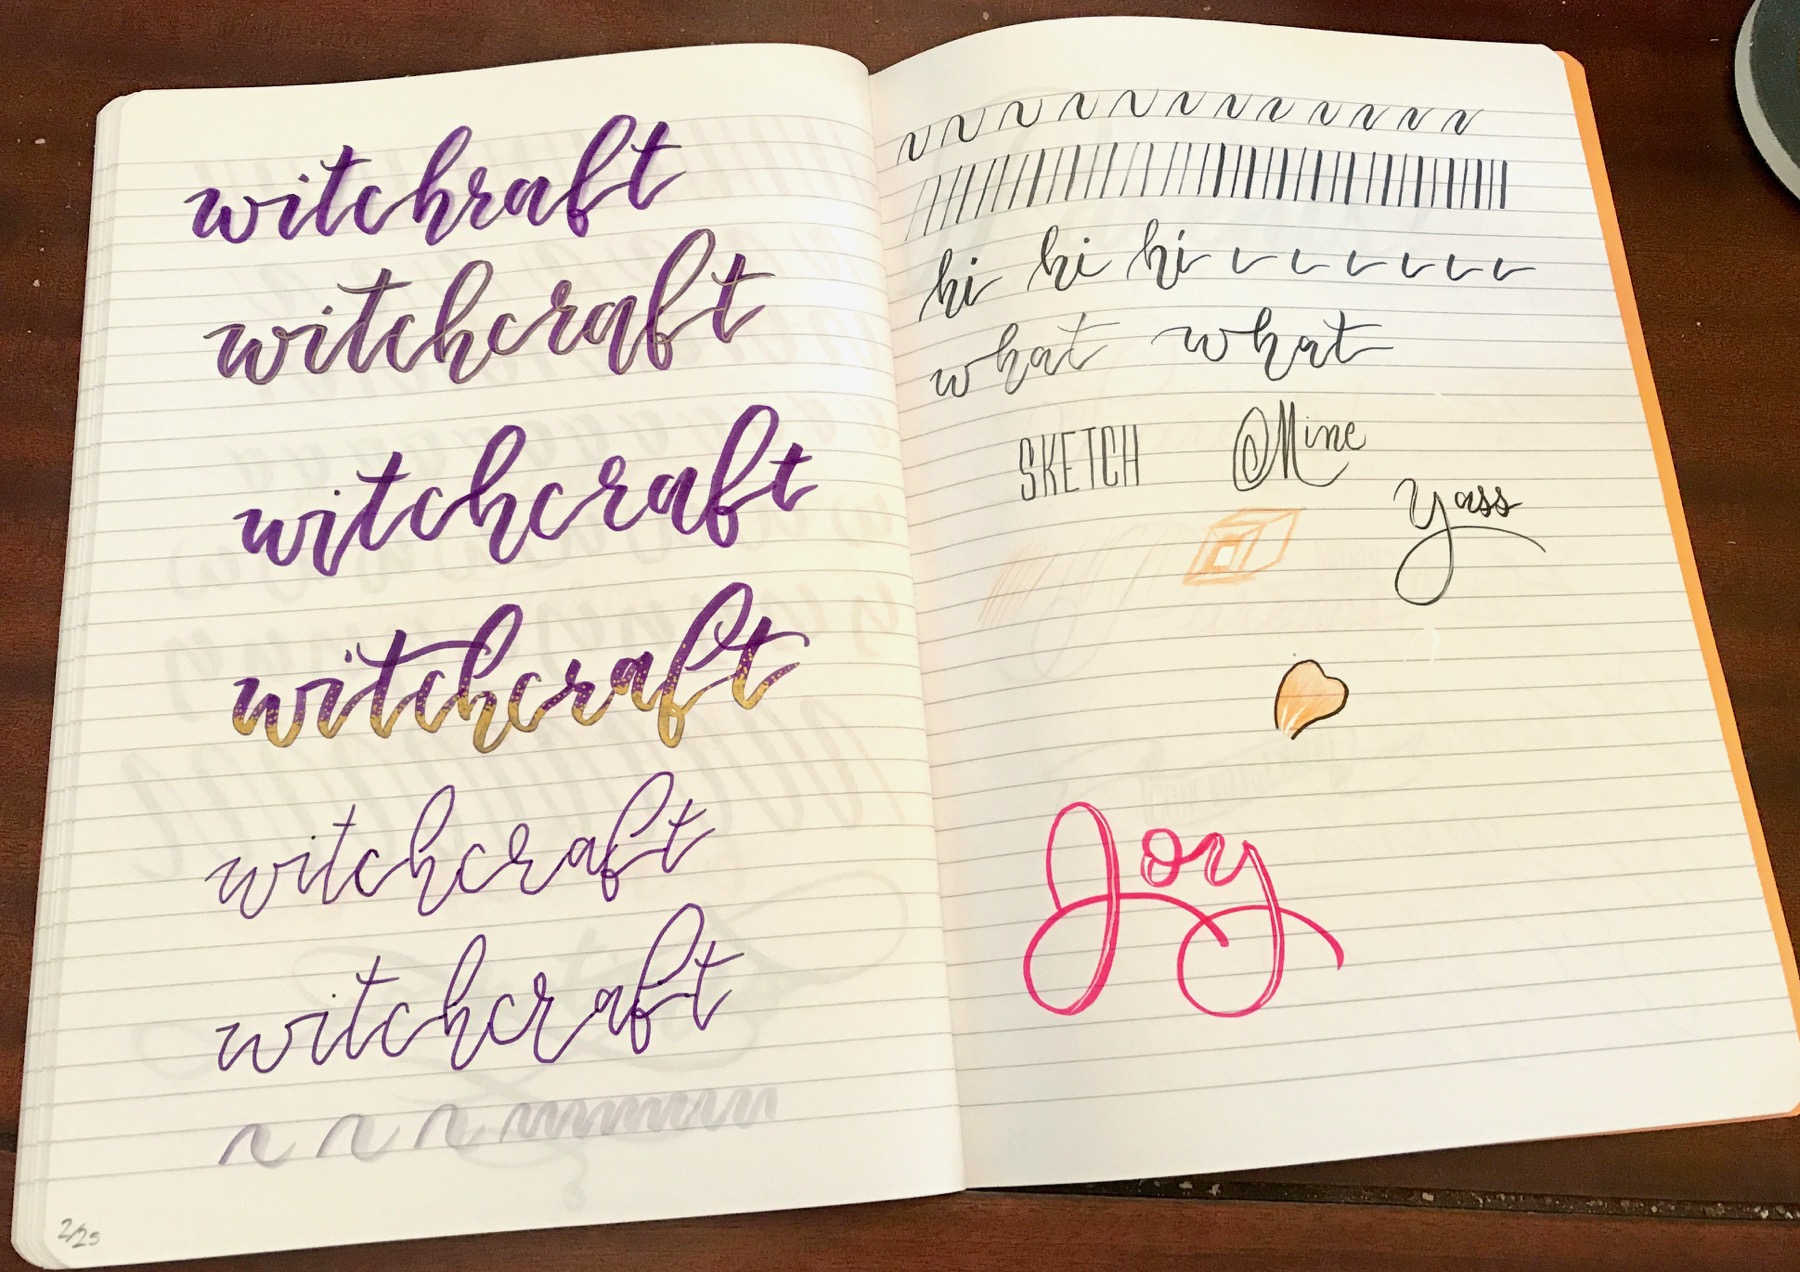 witchraft
witchcraft
witchcraft
witchcraft
witchcraft
witchcraft
2/25
hi hi hi
what what
SKETCH Mine
yass
Joy